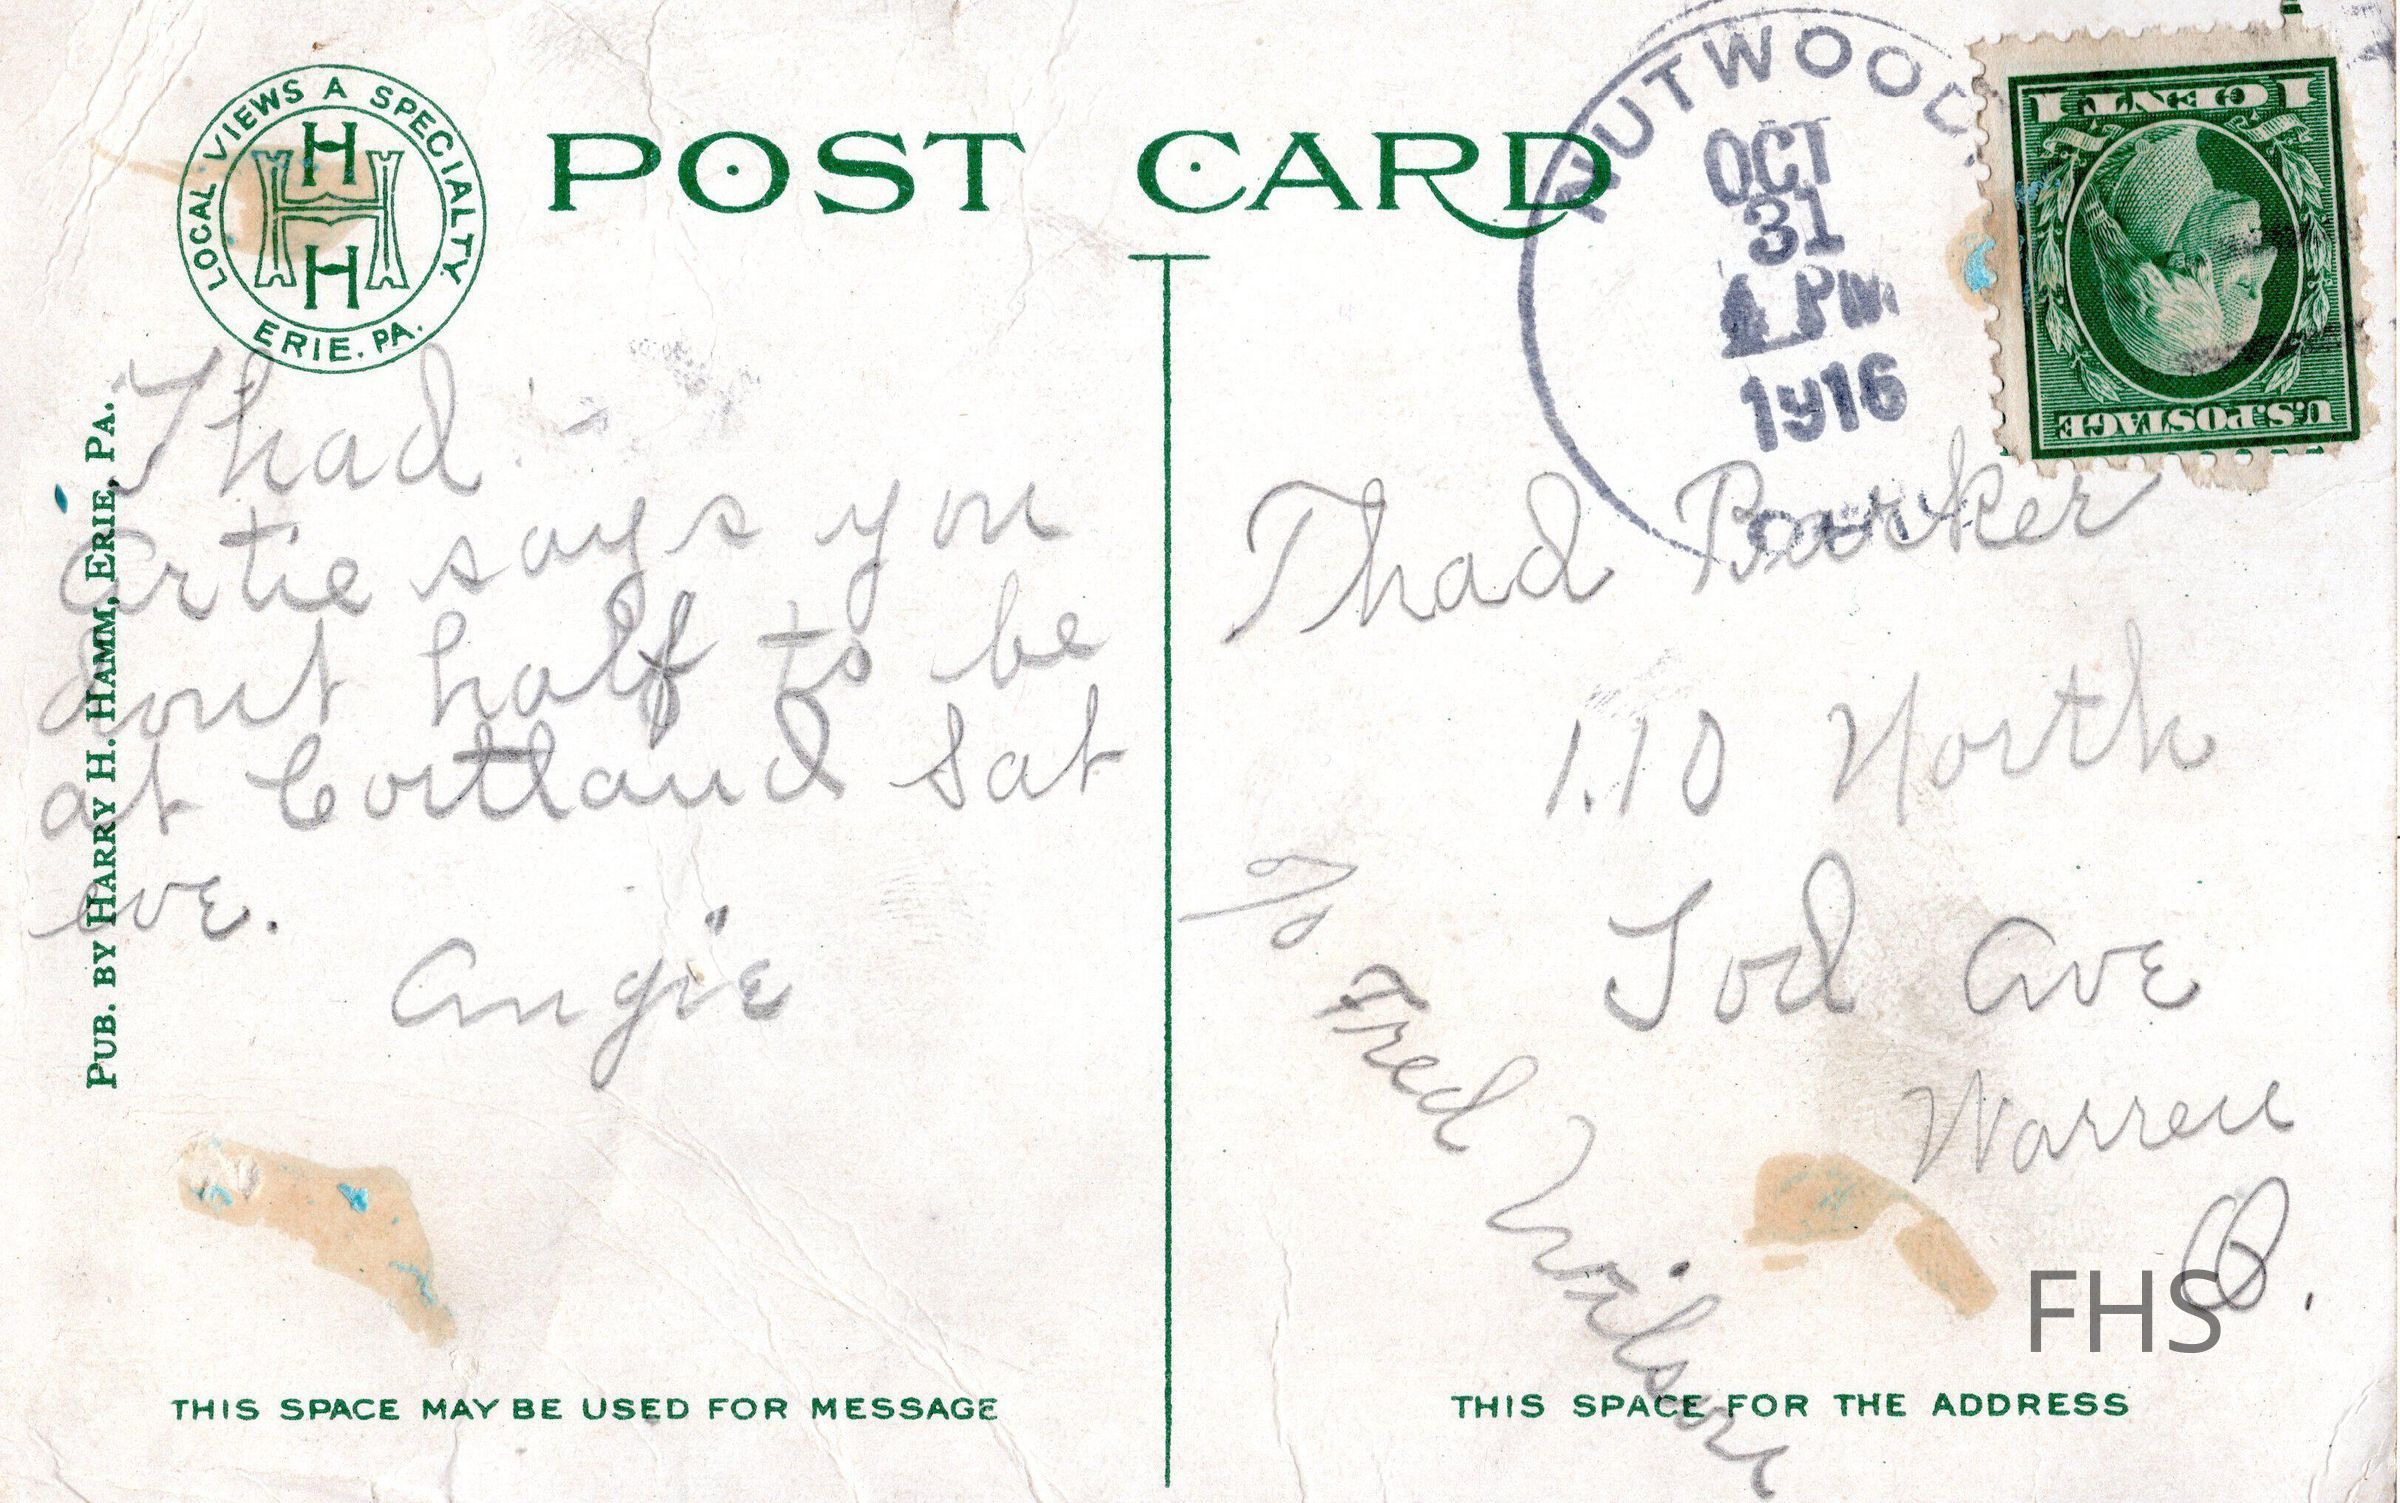 LOCAL VIEWS A SPECIALTY
H H H
ERIE, PA.
POST CARD
NUTWOOD.
OCT
31
PM
1916
OHIO
1 CENT 1
U.S. POSTAGE
PUB. BY HARRY H. HAMM, ERIE, PA.
Thad -
Artie says you
dont half to be
at Cortland Sat
eve.
Angie
Thad Barker
110 North
Tod Ave
Warren
O.
% Fred Wilson
FHS
THIS SPACE MAY BE USED FOR MESSAGE
THIS SPACE FOR THE ADDRESS